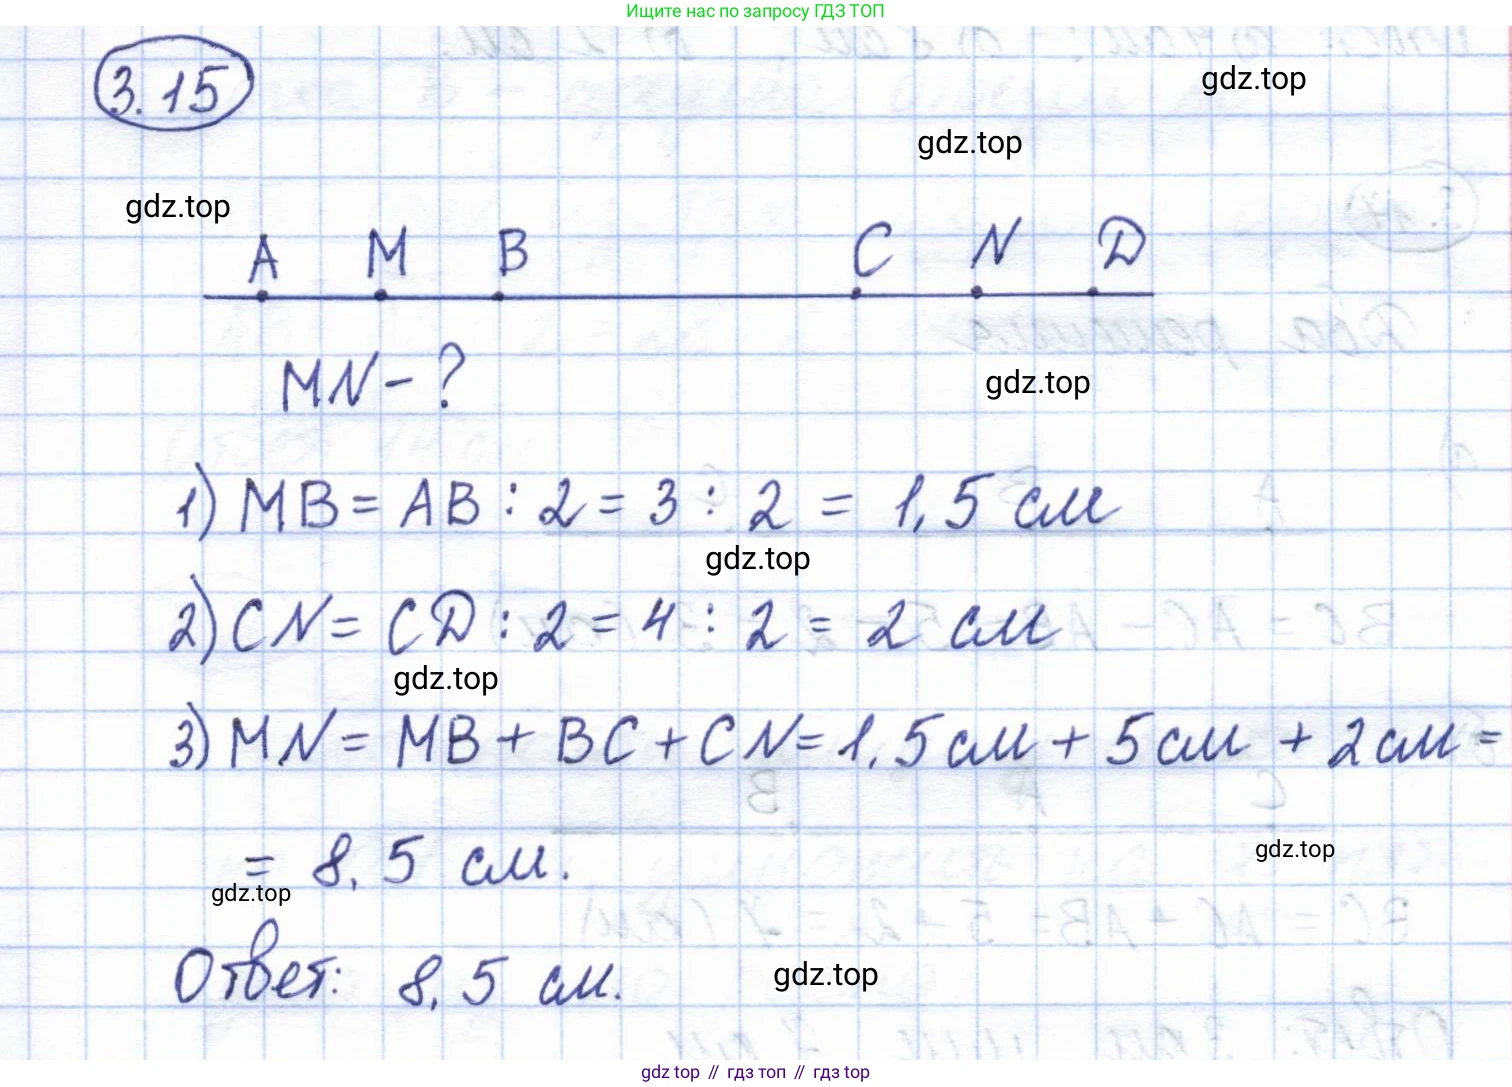 Ищите нас по запросу ГДЗ ТОП
3.15
gdz.top
gdz.top
gdz.top
A M B C N D
MN - ?
gdz.top
1) MB = AB : 2 = 3 : 2 = 1,5 см
gdz.top
2) CN = CD : 2 = 4 : 2 = 2 см
gdz.top
3) MN = MB + BC + CN = 1,5 см + 5 см + 2 см =
= 8,5 см.
gdz.top
gdz.top
Ответ: 8,5 см.
gdz.top
gdz top // гдз топ // гдз top